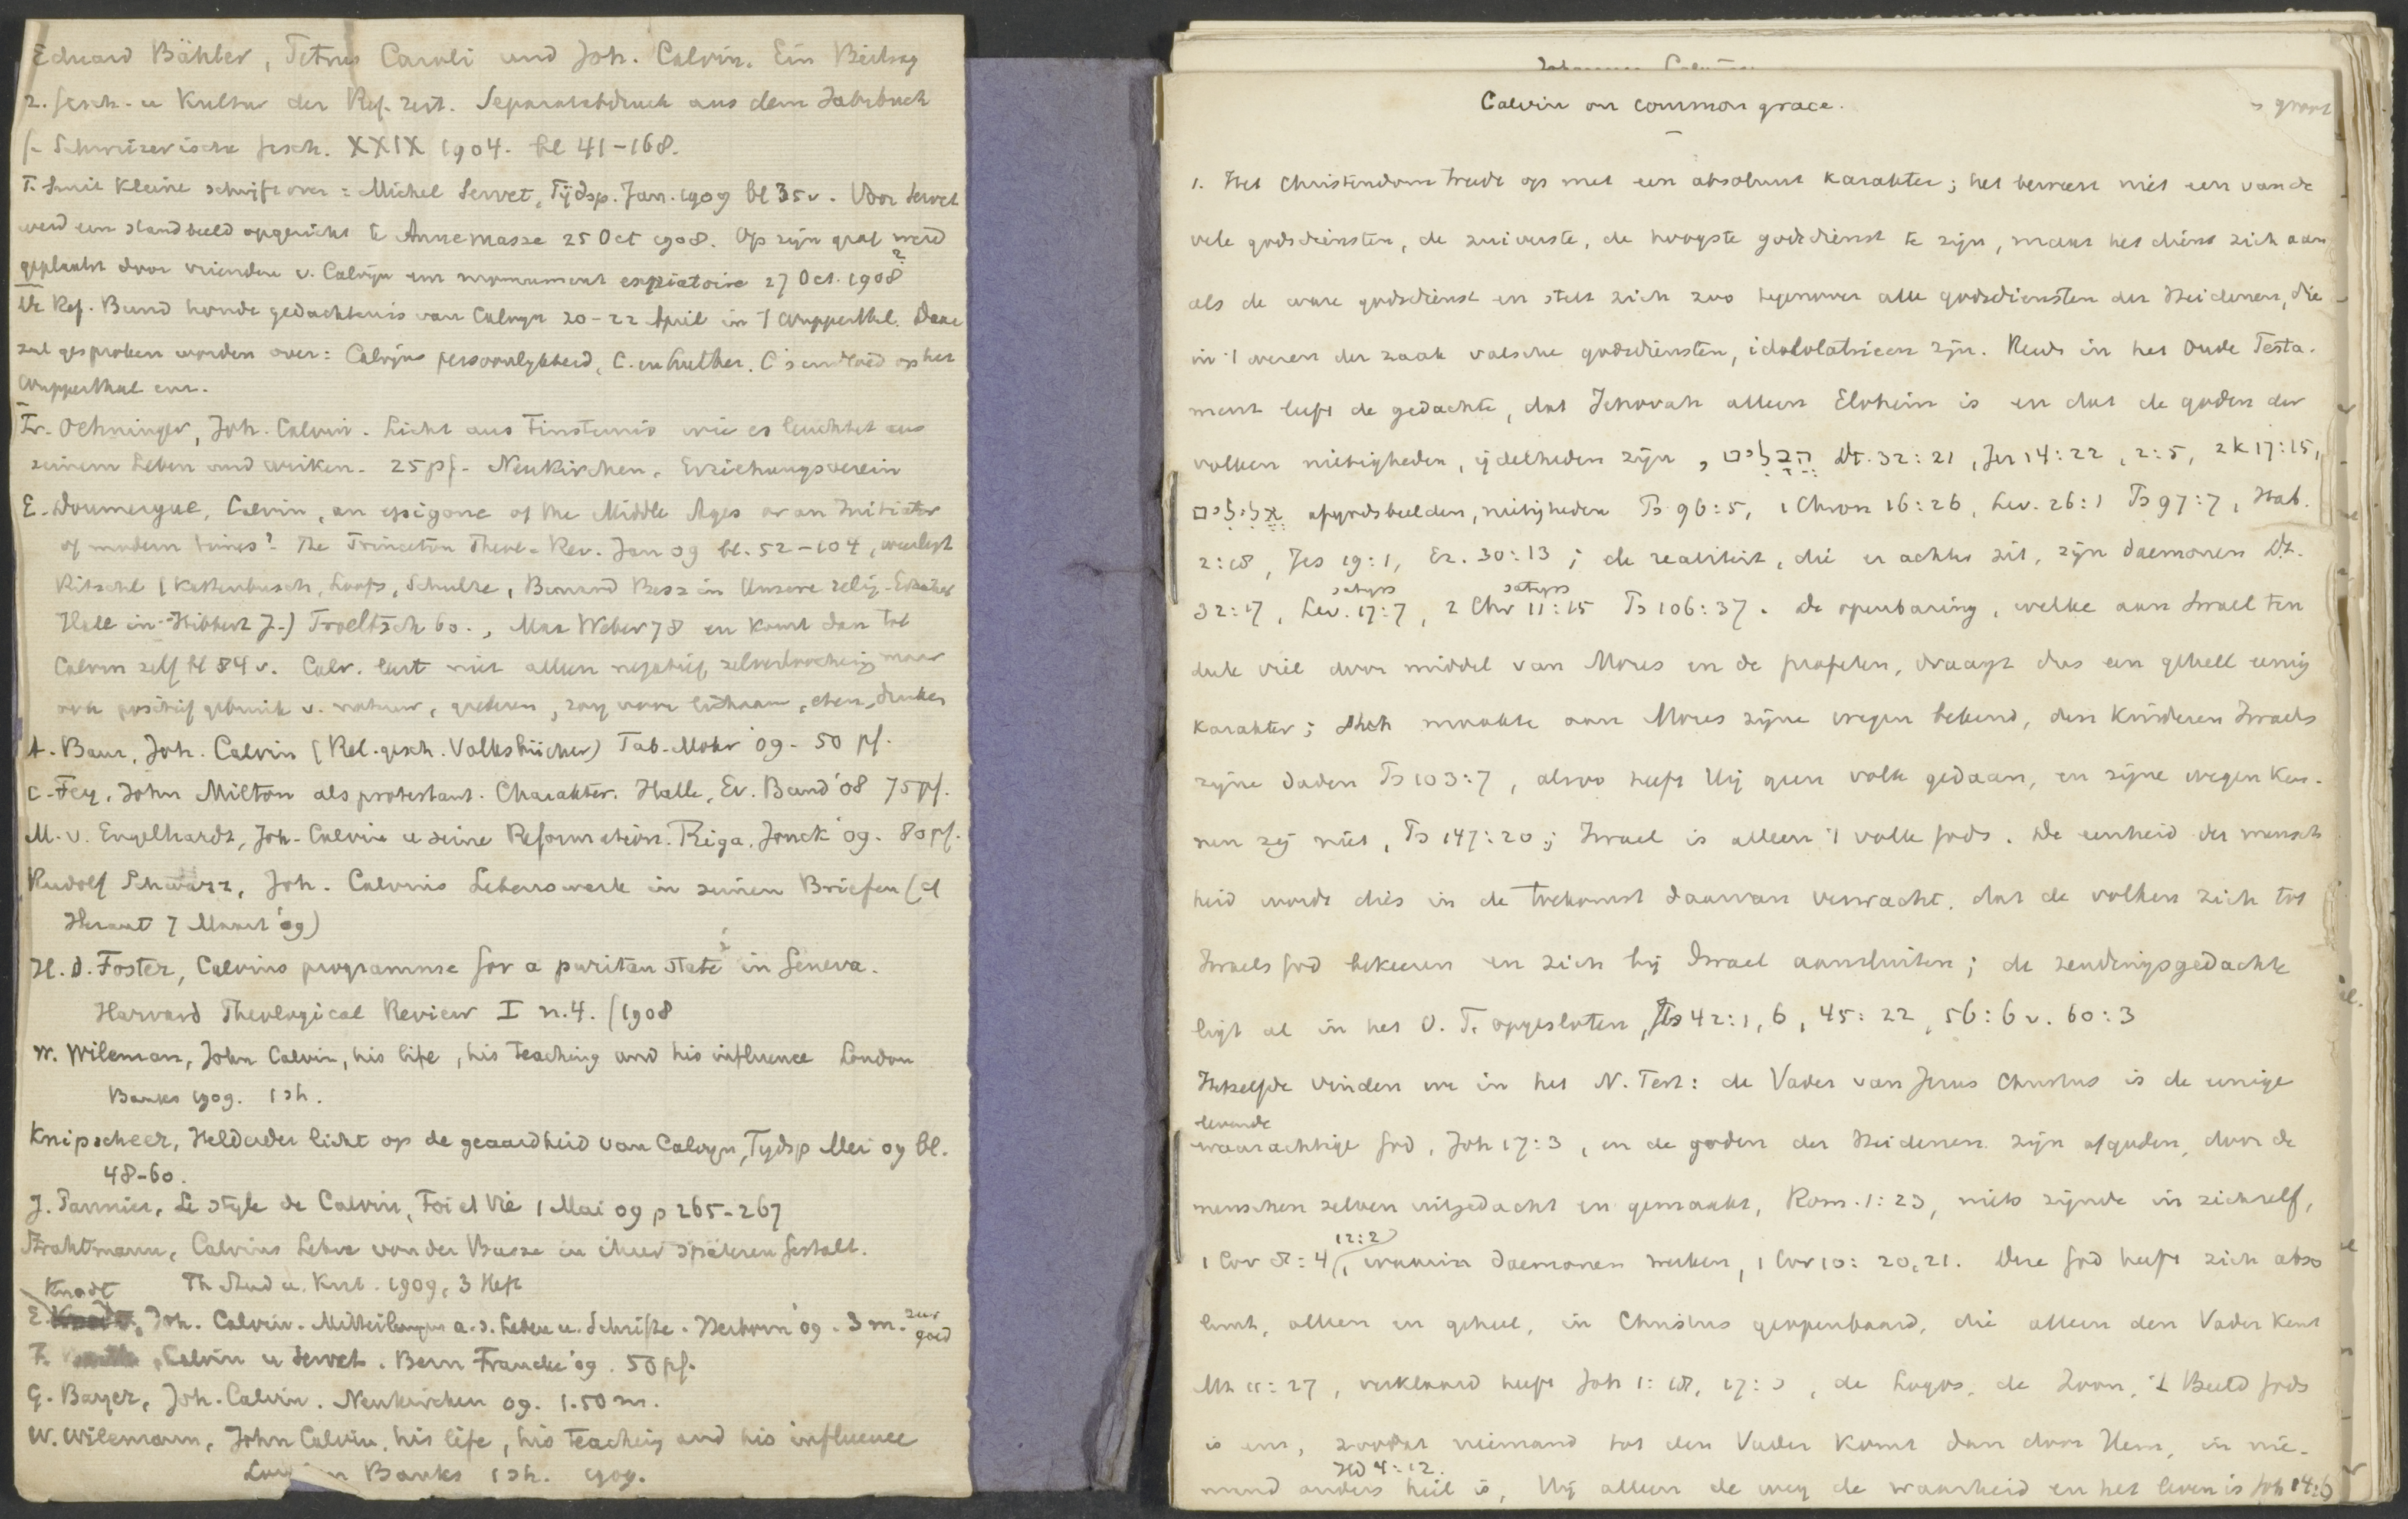 Eduard Bähler, Petrus Caroli und Joh. Calvin. Ein Beitrag
z. Gesch. u Kultur der Ref. zeit. Separatabdruck aus dem Jahrbuch
f. Schweizerische Gesch. XXIX 1904. bl 41-168.
T. Smit Kleine schrift over: Michel Servet, Tijdsp. Jan. 1909 bl 35 v. Voor Servet
werd een standbeeld opgericht te Annemasse 25 Oct 1908. Op zijn graf werd
geplaatst door vrienden v. Calvijn een monument expiatoire 27 Oct. 1908 ?
De Ref. Bund houdt gedachtenis van Calvyn 20-22 April in 't Wupperthal. Daar
zal gesproken worden over: Calvijns persoonlykheid, C. en Luther, C's invloed op het
Wupperthal enz.
Fr. Oehninger, Joh. Calvin. Licht aus Finsternis wie es leuchtet aus
seinem Leben und wirken. 25 pf. Neukirchen. Erziehungsverein
E. Doumergue, Calvin, an epigone of the Middle Ages or an Initiator
of modern times? The Princeton Theol. Rev. Jan 09 bl. 52-104, weerlegt
Ritschl (Kattenbusch, Loofs, Schulze, Bernard Bess in Unsere relig. Erzieher
Hall in Hibbert J.) Troeltsch 60., Max Weber 78 en komt dan tot
Calvin zelf bl 84 v. Calv. leert niet alleen negatief zelverloochening maar
ook positief gebruik v. natuur, goederen, zorg voor lichaam, eten, drinken
A. Baur, Joh. Calvin (Rel. gesch. Volksbücher) Tüb. Mohr '09. 50 pf.
C. Fey, John Milton als protestant. Charakter. Halle, Ev. Bund '08 75 pf.
M. v. Engelhardt, Joh. Calvin u seine Reformation. Riga. Jonck '09. 80 pf.
Rudolf Schwarz, Joh. Calvins Lebenswerk in seinen Briefen (cf
Heraut 7 Maart '09)
H. D. Foster, Calvins programme for a puritan state in Geneva.
Harvard Theological Review I n. 4. (1908
W. Wileman, John Calvin, his life, his teaching and his influence London
Banks 1909. 1 sh.
Knipscheer, Helderder licht op de geaardheid van Calvyn, Tydsp Mei 09 bl.
48-60.
J. Pannier, Le style de Calvin, Foi et Vie 1 Mai 09 p 265-267
Strahtmann, Calvins Lehre von der Busse in ihrer späteren Gestalt.
Th Stud u. Krit. 1909, 3 Heft
Knodt
E. Joh. Calvin. Mitteilungen a. s. Leben u. Schriften. Herborn '09. 3 m. zeer goed
Calvin u Servet. Bern Francke '09. 50 pf.
G. Bayer, Joh. Calvin. Neukirchen 09. 1.50 m.
W. Wilemann, John Calvin, his life, his teaching and his influence
Banks 1 sh. 1909.
Calvin on common grace.
1. Het Christendom treedt op met een absoluut karakter; het beweert niet een van de
vele godsdiensten, de zuiverste, de hoogste godsdienst te zijn, maar het dient zich aan
als de ware godsdienst en stelt zich zoo tegenover alle godsdiensten der Heidenen, die
in 't wezen der zaak valsche godsdiensten, idololatrieen zijn. Reeds in het Oude Testa-
ment leeft de gedachte, dat Jehovah alleen Elohim is en dat de goden der
volken nietigheden, ijdelheden zijn, הֲבָלִים Dt. 32:21, Jer 14:22, 2:5, 2 K 17:15,
אֱלִילִים afgodsbeelden, nietigheden Ps 96:5, 1 Chron 16:26, Lev. 26:1 Ps 97:7, Hab.
2:18, Jes 19:1, Ez. 30:13; de realiteit, die er achter zit, zijn daemonen Dt.
satyrs satyrs
32:17, Lev. 17:7, 2 Chr 11:15 Ps 106:37. De openbaring, welke aan Israel ten
deele viel door middel van Mozes en de profeten, draagt dus een geheel eenig
karakter; maakte aan Mozes zijne wegen bekend, den kinderen Israels
zijne daden Ps 103:7, alzoo heeft Hij geen volk gedaan, en zijne wegen ken-
nen zij niet, Ps 147:20; Israel is alleen 't volk Gods. De eenheid der mensch
heid wordt dies in de toekomst daarvan verwacht, dat de volken zich tot
Israels God bekeeren en zich bij Israel aansluiten; de zendingsgedachte
ligt al in het O. T. opgesloten, Jes 42:1, 6, 45:22, 56:6 v. 60:3
Hetzelfde vinden we in het N. Test: de Vader van Jezus Christus is de eenige
levende
waarachtige God, Joh 17:3, en de goden der Heidenen zijn afgoden, door de
menschen zelven uitgedacht en gemaakt, Rom. 1:23, niets zijnde in zichzelf,
12:2
1 Cor 8:4, waarin daemonen werken, 1 Cor 10:20, 21. Deze God heeft zich abso
luut, alleen en geheel, in Christus geopenbaard, die alleen den Vader kent
Mt 11:27, verklaard heeft Joh 1:18, 17:3, de Logos, de Zoon, 't Beeld Gods
is enz, zoodat niemand tot den Vader komt dan door Hem, in nie-
Hd 4:12.
mand anders heil is, Hij alleen de weg de waarheid en het leven is Joh 14:6